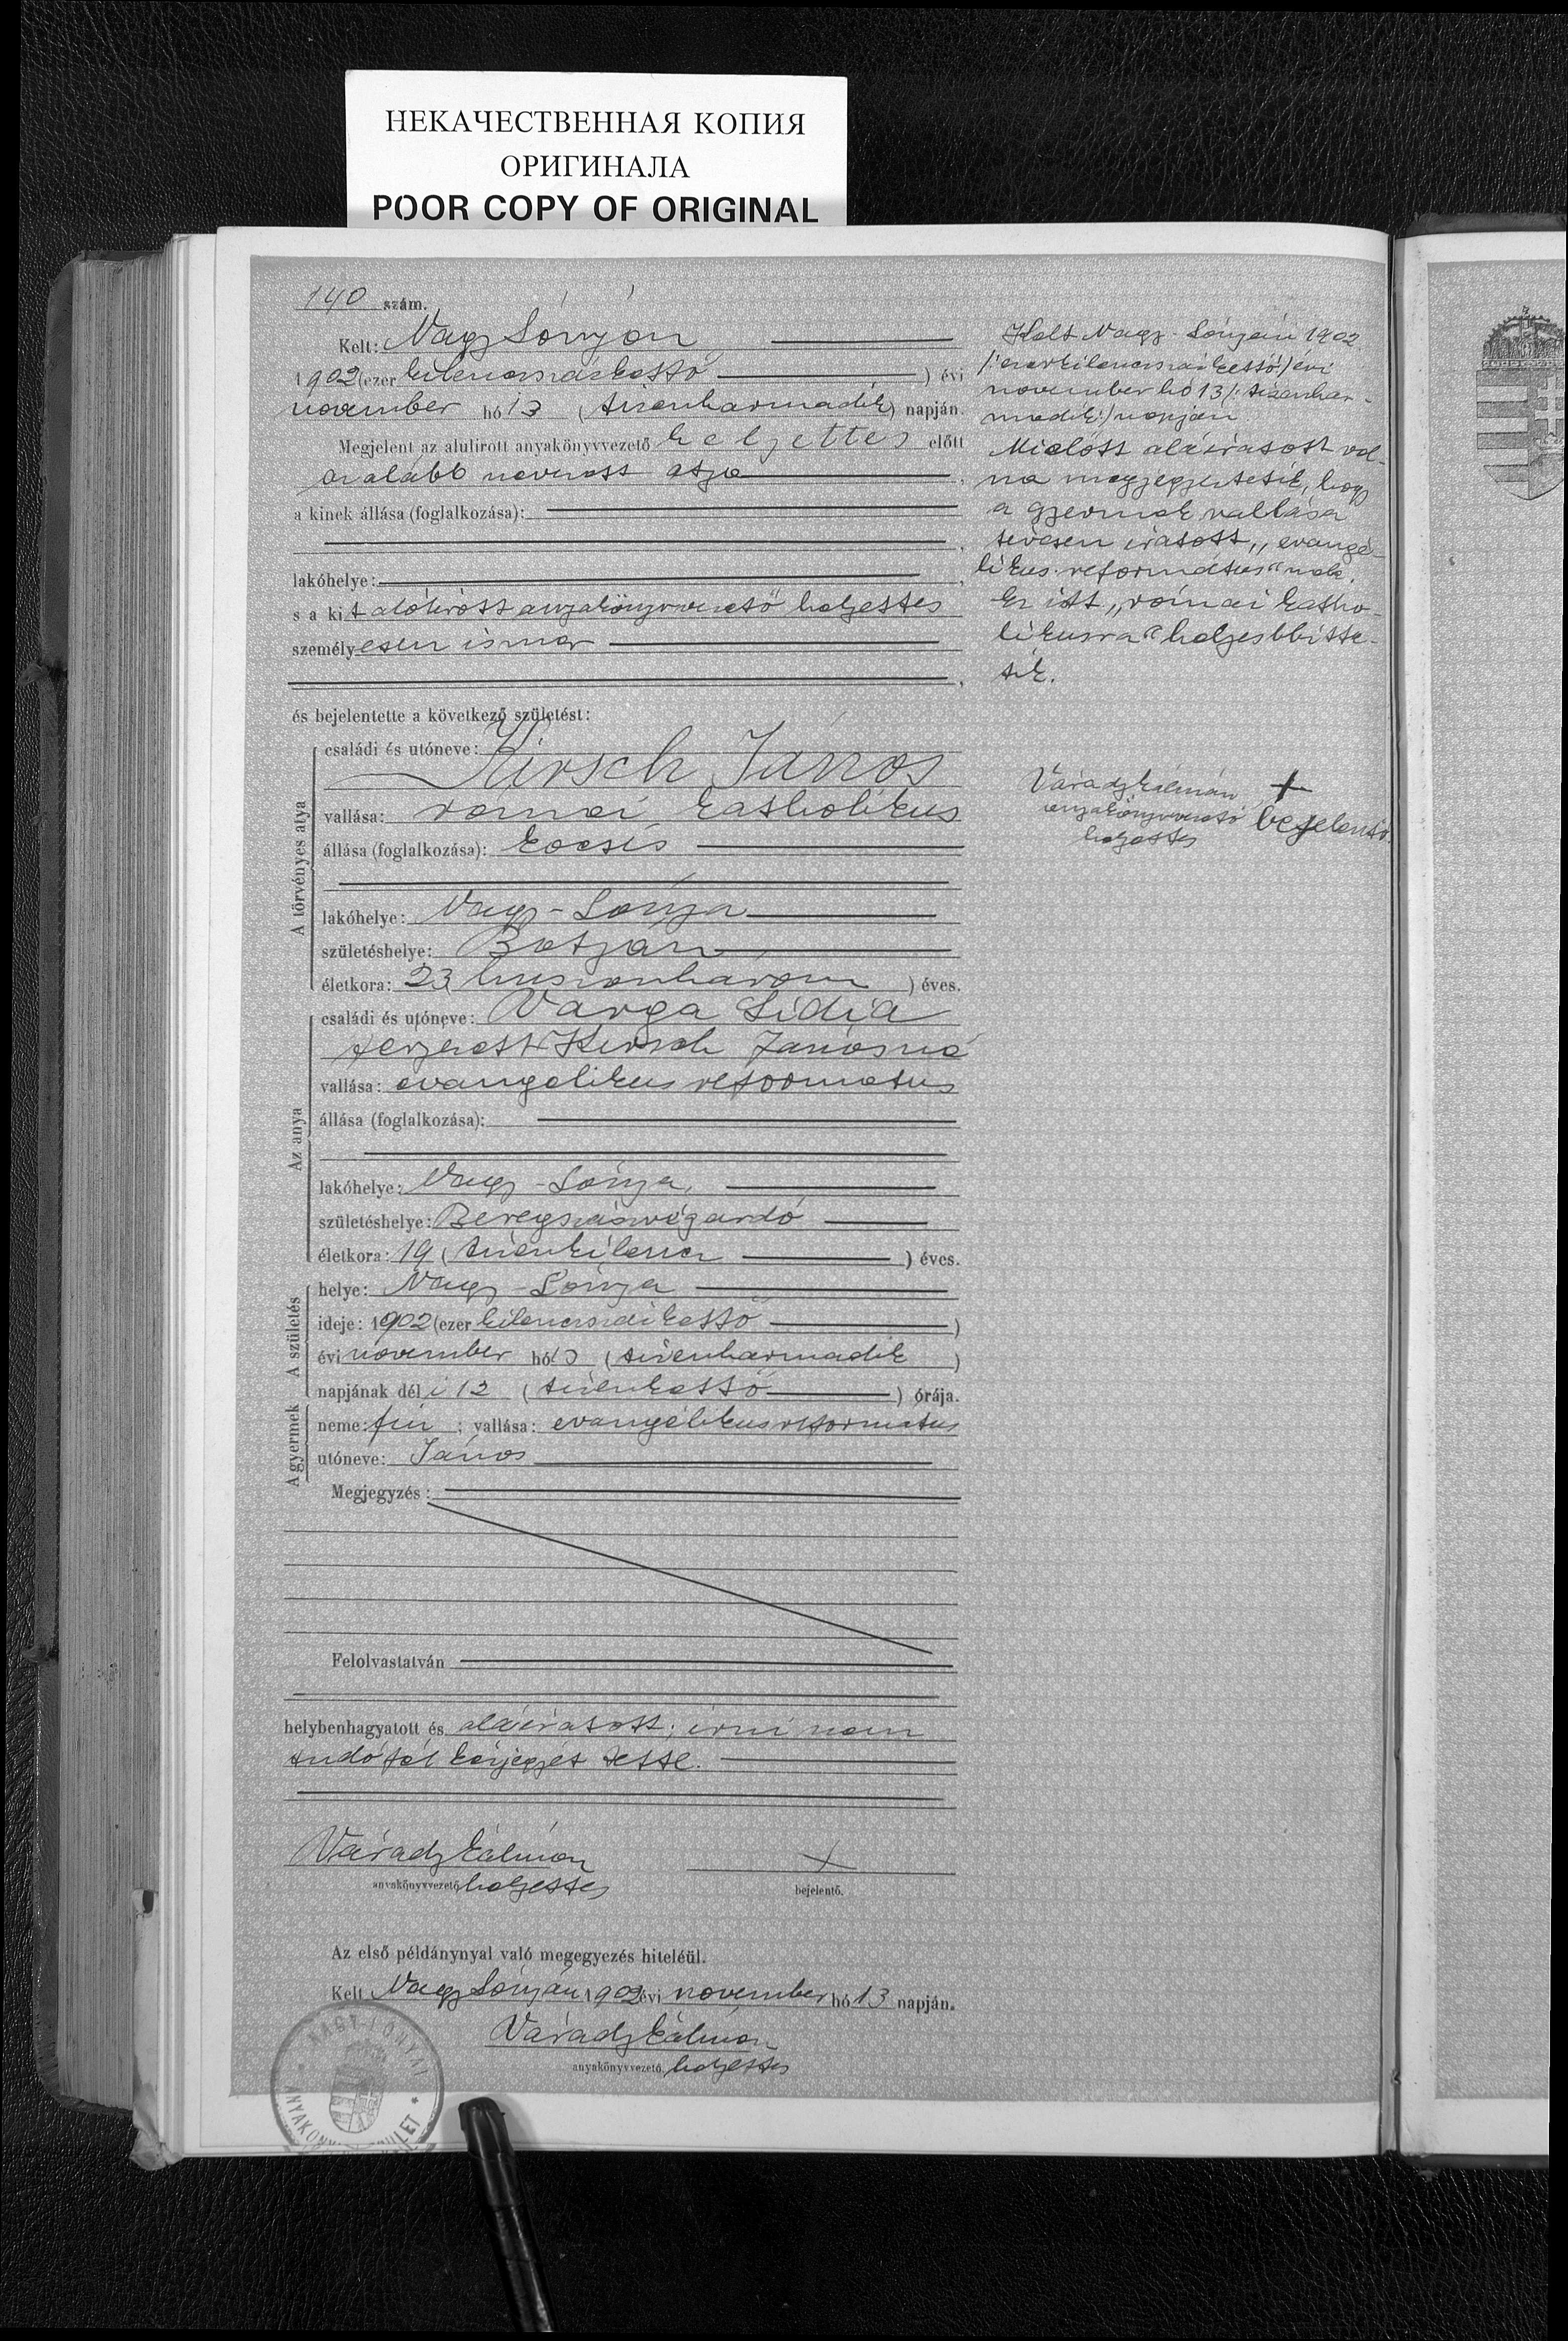 НЕКАЧЕСТВЕННАЯ КОПИЯ
ОРИГИНАЛА
POOR COPY OF ORIGINAL
140 szám.
Kelt: Nagy Lónyán
1902 (ezer kilenczszázkettő) évi
november hó 13 (tizenharmadik) napján.
Megjelent az alulirott anyakönyvvezető helyettes előtt
az alább nevezett atya,
a kinek állása (foglalkozása):
lakóhelye:
s a kit alólirott anyakönyvvezető helyettes
személyesen ismer
és bejelentette a következő születést:
A törvényes atya
családi és utóneve:
Kirsch János
vallása: romai katholikus
állása (foglalkozása): kocsis
lakóhelye: Nagy-Lónya
születéshelye: Botján
életkora: 23 (huszonhárom) éves.
Az anya
családi és utóneve: Varga Lidia
férjezett Kirsch Jánosné
vallása: evangelikus reformatus
állása (foglalkozása):
lakóhelye: Nagy-Lónya,
születéshelye: Beregszászvégardó
életkora: 19 (tizenkilencz) éves.
A születés
helye: Nagy-Lónya
ideje: 1902 (ezer kilenczszázkettő)
évi november hó 13 (tizenharmadik)
napjának dél i 12 (tizenkettő) órája.
A gyermek
neme: fiú; vallása: evangélikus reformatus
utóneve: János
Megjegyzés:
Felolvastatván
helybenhagyatott és aláiratott; irni nem
tudó fél kézjegyét tette.
Várady Kálmán
anyakönyvvezető helyettes
+
bejelentő.
Az első példánynyal való megegyezés hiteléül.
Kelt Nagy Lónyán 1902 évi november hó 13 napján.
Várady Kálmán
anyakönyvvezető, helyettes
NAGY-LÓNYAI
ANYAKÖNYVI KERÜLET
Kelt Nagy-Lónyán 1902
/:ezerkilenczszázkettő:/ évi
november hó 13 /:tizenhar-
madik:/ napján.
Mielőtt aláiratott vol-
na megjegyeztetik, hogy
a gyermek vallása
tévesen iratott „evangé-
likus református"nak.
Ez itt „római katho-
likusra" helyesbbitte-
tik.
Várady Kálmán
anyakönyvvezető
helyettes
+
bejelentő.